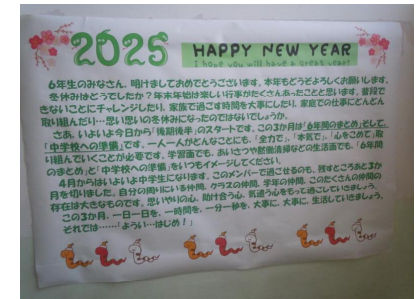 2025 HAPPY NEW YEAR
I hope you will have a great year!
6年生のみなさん、明けましておめでとうございます。本年もどうぞよろしくお願いします。
冬休みはどうでしたか?年末年始は楽しい行事がたくさんあったことと思います。普段で
きないことにチャレンジしたり、家族で過ごす時間を大事にしたり、家庭での仕事にどんどん
取り組んだり…思い思いの冬休みになったのではないでしょうか。
さあ、いよいよ今日から「後期後半」のスタートです。この3か月は「6年間のまとめ」そして、
「中学校への準備」です。一人一人がどんなことにも、「全力で」、「本気で」、「心をこめて」取
り組んでいくことが必要です。学習面でも、あいさつや黙働清掃などの生活面でも、「6年間
のまとめ」と「中学校への準備」をいつもイメージしてください。
4月からはいよいよ中学生になります。このメンバーで過ごせるのも、残すところあと3か
月を切りました。自分の周りにいる仲間、クラスの仲間、学年の仲間、このたくさんの仲間の
存在は大きなものです。思いやりの心、助け合う心、気遣う心をもって過ごしていきましょう。
この3か月、一日一日を、一時間を、一分一秒を、大事に、大事に、生活していきましょう。
それでは……「ようい…はじめ!」